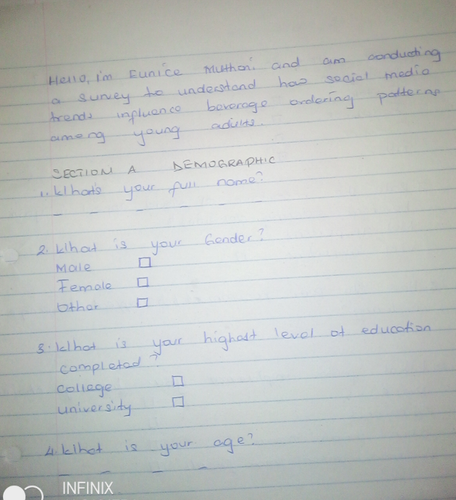 Hello, i'm Eunice Muthoni and am conducting
a survey to understand how social media
trends influence beverage ordering patterns
among young adults.
SECTION A DEMOGRAPHIC
1. What's your full name?
_ _ _ _ _ _
2. What is your Gender?
Male □
Female □
Other □
3. What is your highest level of education
completed?
College □
University □
4. What is your age?
_ _ _ _
INFINIX